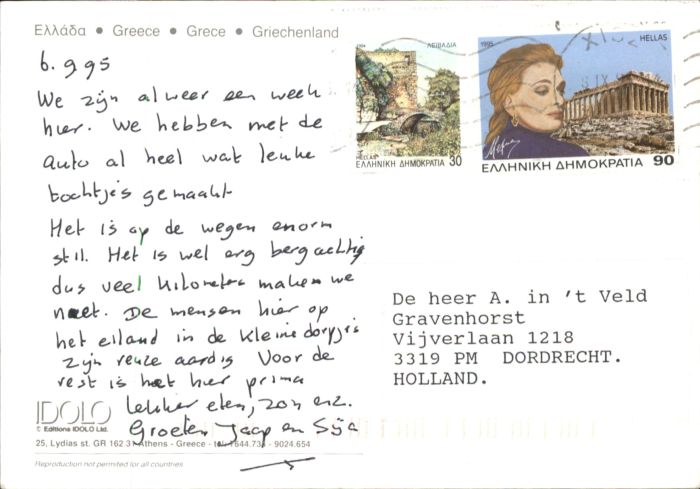 Ελλάδα • Greece • Grece • Griechenland
6.9 95
We zijn alweer een week
hier. We hebben met de
auto al heel wat leuke
tochtjes gemaakt
Het is op de wegen enorm
stil. Het is wel erg bergachtig
dus veel kilometers maken we
niet. De mensen hier op
het eiland in de kleine dorpjes
zijn reuze aardig Voor de
rest is het hier prima
lekker eten, zon enz.
Groeten Jaap en Sija
IDOLO
© Editions IDOLO Ltd.
25, Lydias st. GR 162.31 Athens - Greece - tel. 7644.73 - 9024.654
Reproduction not permitted for all countries
1994 ΛΕΙΒΑΔΙΑ
HELLAS
ΕΛΛΗΝΙΚΗ ΔΗΜΟΚΡΑΤΙΑ 30
1995 HELLAS
ΕΛΛΗΝΙΚΗ ΔΗΜΟΚΡΑΤΙΑ 90
De heer A. in 't Veld
Gravenhorst
Vijverlaan 1218
3319 PM DORDRECHT.
HOLLAND.